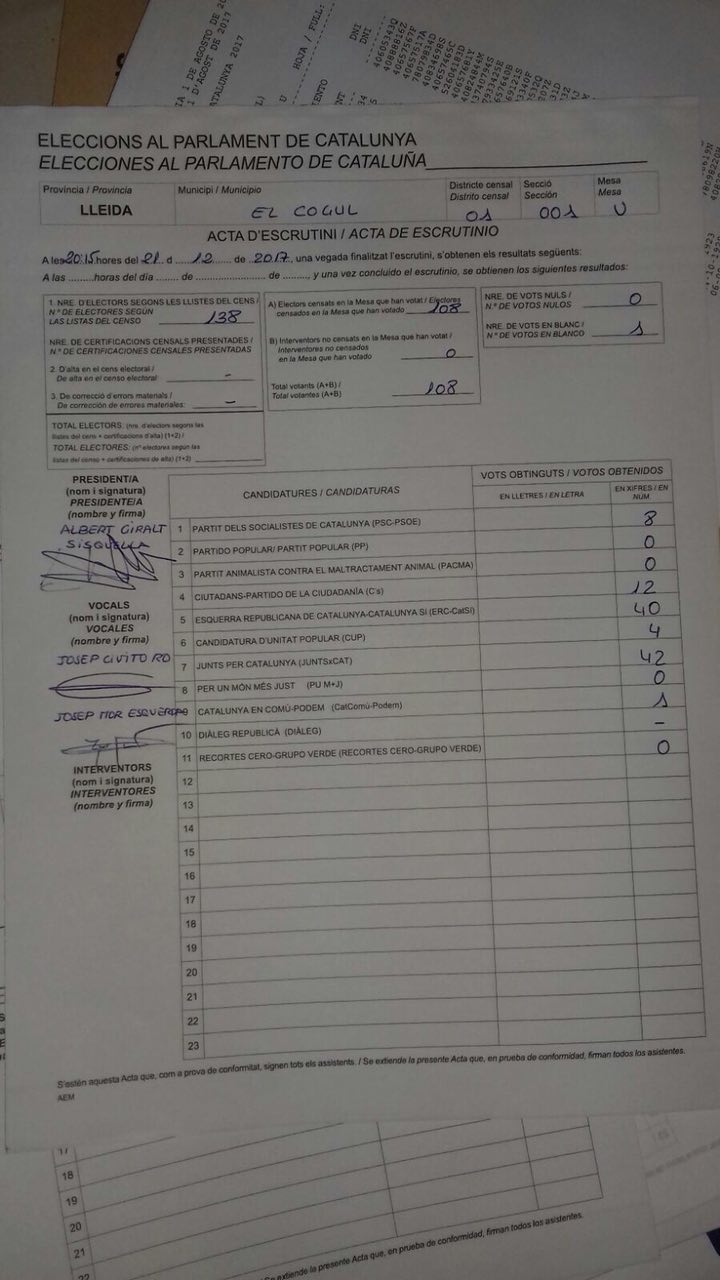 ELECCIONS AL PARLAMENT DE CATALUNYA
ELECCIONES AL PARLAMENTO DE CATALUÑA
Província / Provincia
LLEIDA
Municipi / Municipio
EL COGUL
Districte censal
Distrito censal
01
Secció
Sección
001
Mesa
Mesa
U
ACTA D'ESCRUTINI / ACTA DE ESCRUTINIO
A les 20:15 hores del 21 d 12 de 2017, una vegada finalitzat l'escrutini, s'obtenen els resultats següents:
A las .........horas del día ........ de ........................ de ........., y una vez concluido el escrutinio, se obtienen los siguientes resultados:
1. NRE. D'ELECTORS SEGONS LES LLISTES DEL CENS /
N.º DE ELECTORES SEGÚN
LAS LISTAS DEL CENSO 138
NRE. DE CERTIFICACIONS CENSALS PRESENTADES /
N.º DE CERTIFICACIONES CENSALES PRESENTADAS
2. D'alta en el cens electoral /
De alta en el censo electoral: -
3. De correcció d'errors materials /
De corrección de errores materiales: -
TOTAL ELECTORS: (nre. d'electors segons les
llistes del cens + certificacions d'alta) (1+2) /
TOTAL ELECTORES: (nº electores según las
listas del censo + certificaciones de alta) (1+2)
A) Electors censats en la Mesa que han votat / Electores
censados en la Mesa que han votado 108
B) Interventors no censats en la Mesa que han votat /
Interventores no censados
en la Mesa que han votado 0
Total votants (A+B) /
Total votantes (A+B) 108
NRE. DE VOTS NULS /
N.º DE VOTOS NULOS 0
NRE. DE VOTS EN BLANC /
N.º DE VOTOS EN BLANCO 1
PRESIDENT/A
(nom i signatura)
PRESIDENTE/A
(nombre y firma)
ALBERT GIRALT
SISQUELLA
VOCALS
(nom i signatura)
VOCALES
(nombre y firma)
JOSEP
JOSEP MOR
INTERVENTORS
(nom i signatura)
INTERVENTORES
(nombre y firma)
CANDIDATURES / CANDIDATURAS
VOTS OBTINGUTS / VOTOS OBTENIDOS
EN LLETRES / EN LETRA
EN XIFRES / EN
NUM.
1 PARTIT DELS SOCIALISTES DE CATALUNYA (PSC-PSOE) 8
2 PARTIDO POPULAR/ PARTIT POPULAR (PP) 0
3 PARTIT ANIMALISTA CONTRA EL MALTRACTAMENT ANIMAL (PACMA) 0
4 CIUTADANS-PARTIDO DE LA CIUDADANÍA (C's) 12
5 ESQUERRA REPUBLICANA DE CATALUNYA-CATALUNYA SÍ (ERC-CatSí) 40
6 CANDIDATURA D'UNITAT POPULAR (CUP) 4
7 JUNTS PER CATALUNYA (JUNTSxCAT) 42
8 PER UN MÓN MÉS JUST (PU M+J) 0
CATALUNYA EN COMÚ-PODEM (CatComú-Podem) 1
10 DIÀLEG REPUBLICÀ (DIÀLEG) -
11 RECORTES CERO-GRUPO VERDE (RECORTES CERO-GRUPO VERDE) 0
12
13
14
15
16
17
18
19
20
21
22
23
S'estén aquesta Acta que, com a prova de conformitat, signen tots els assistents. / Se extiende la presente Acta que, en prueba de conformidad, firman todos los asistentes.
AEM
17
18
19
20
21
22
Se extiende la presente Acta que, en prueba de conformidad, firman todos los asistentes.